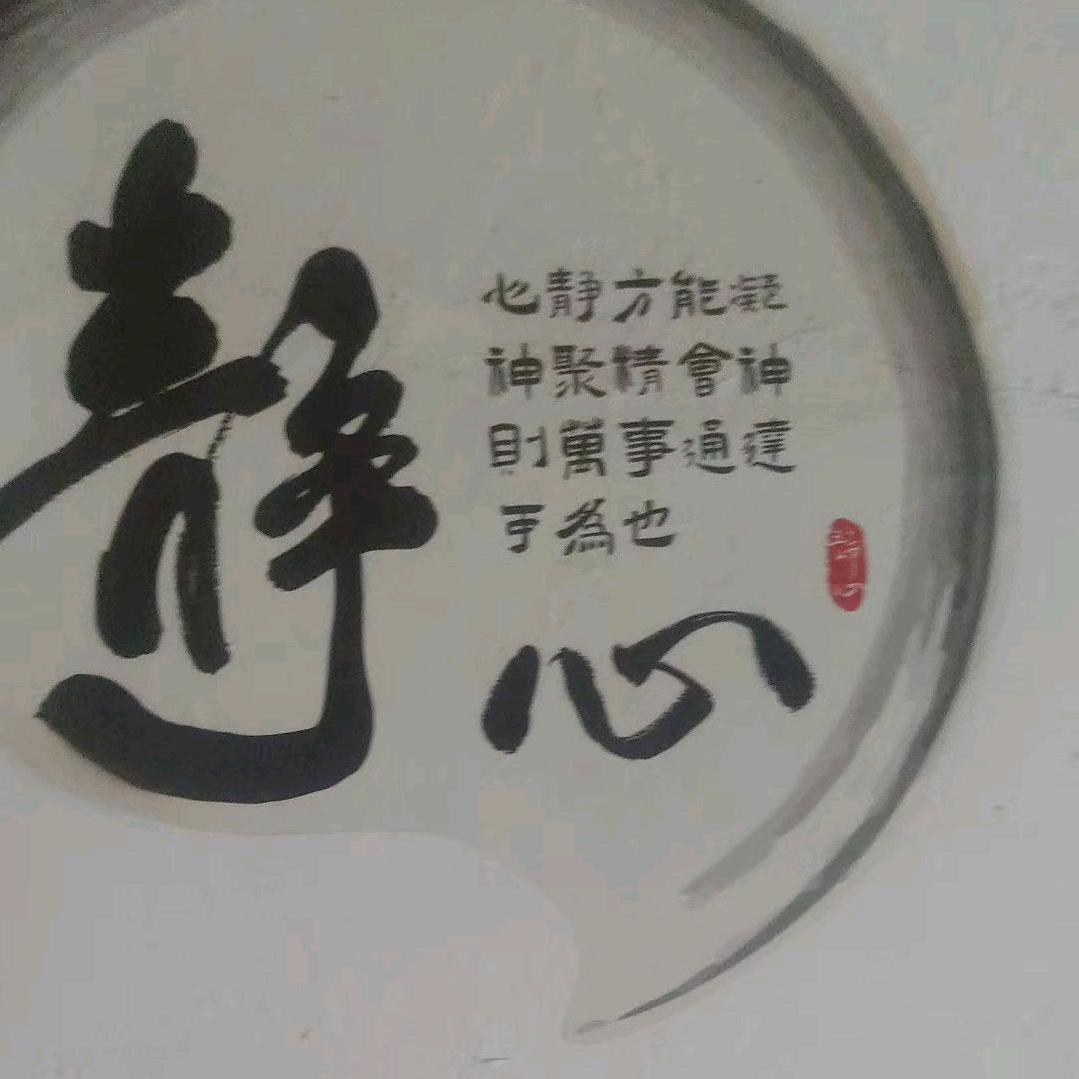 静
心静方能凝
神聚精會神
則萬事通達
可為也
心